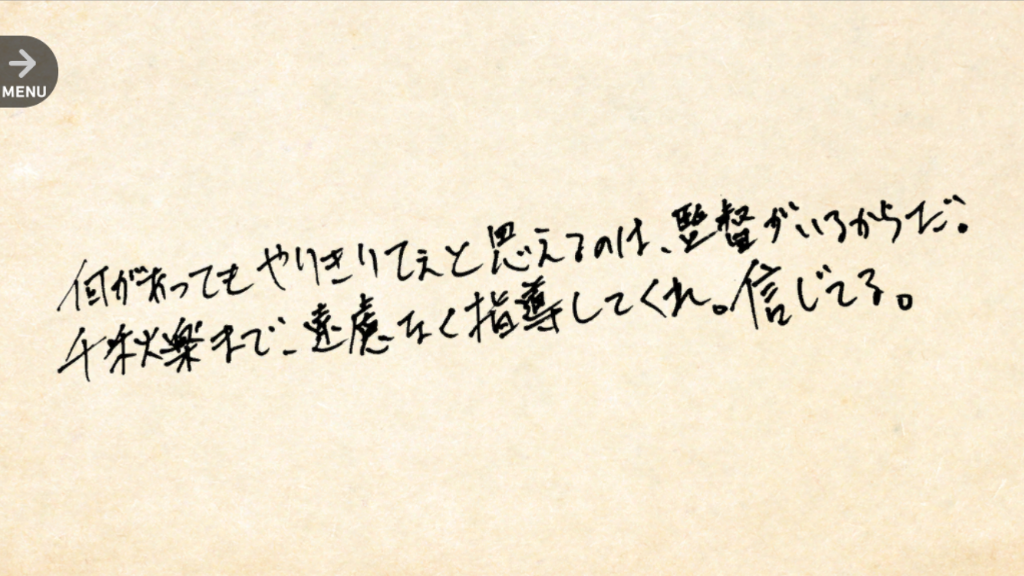 MENU
何があってもやりきりてえと思えるのは、監督がいるからだ。
千秋楽まで、遠慮なく指導してくれ。信じてる。